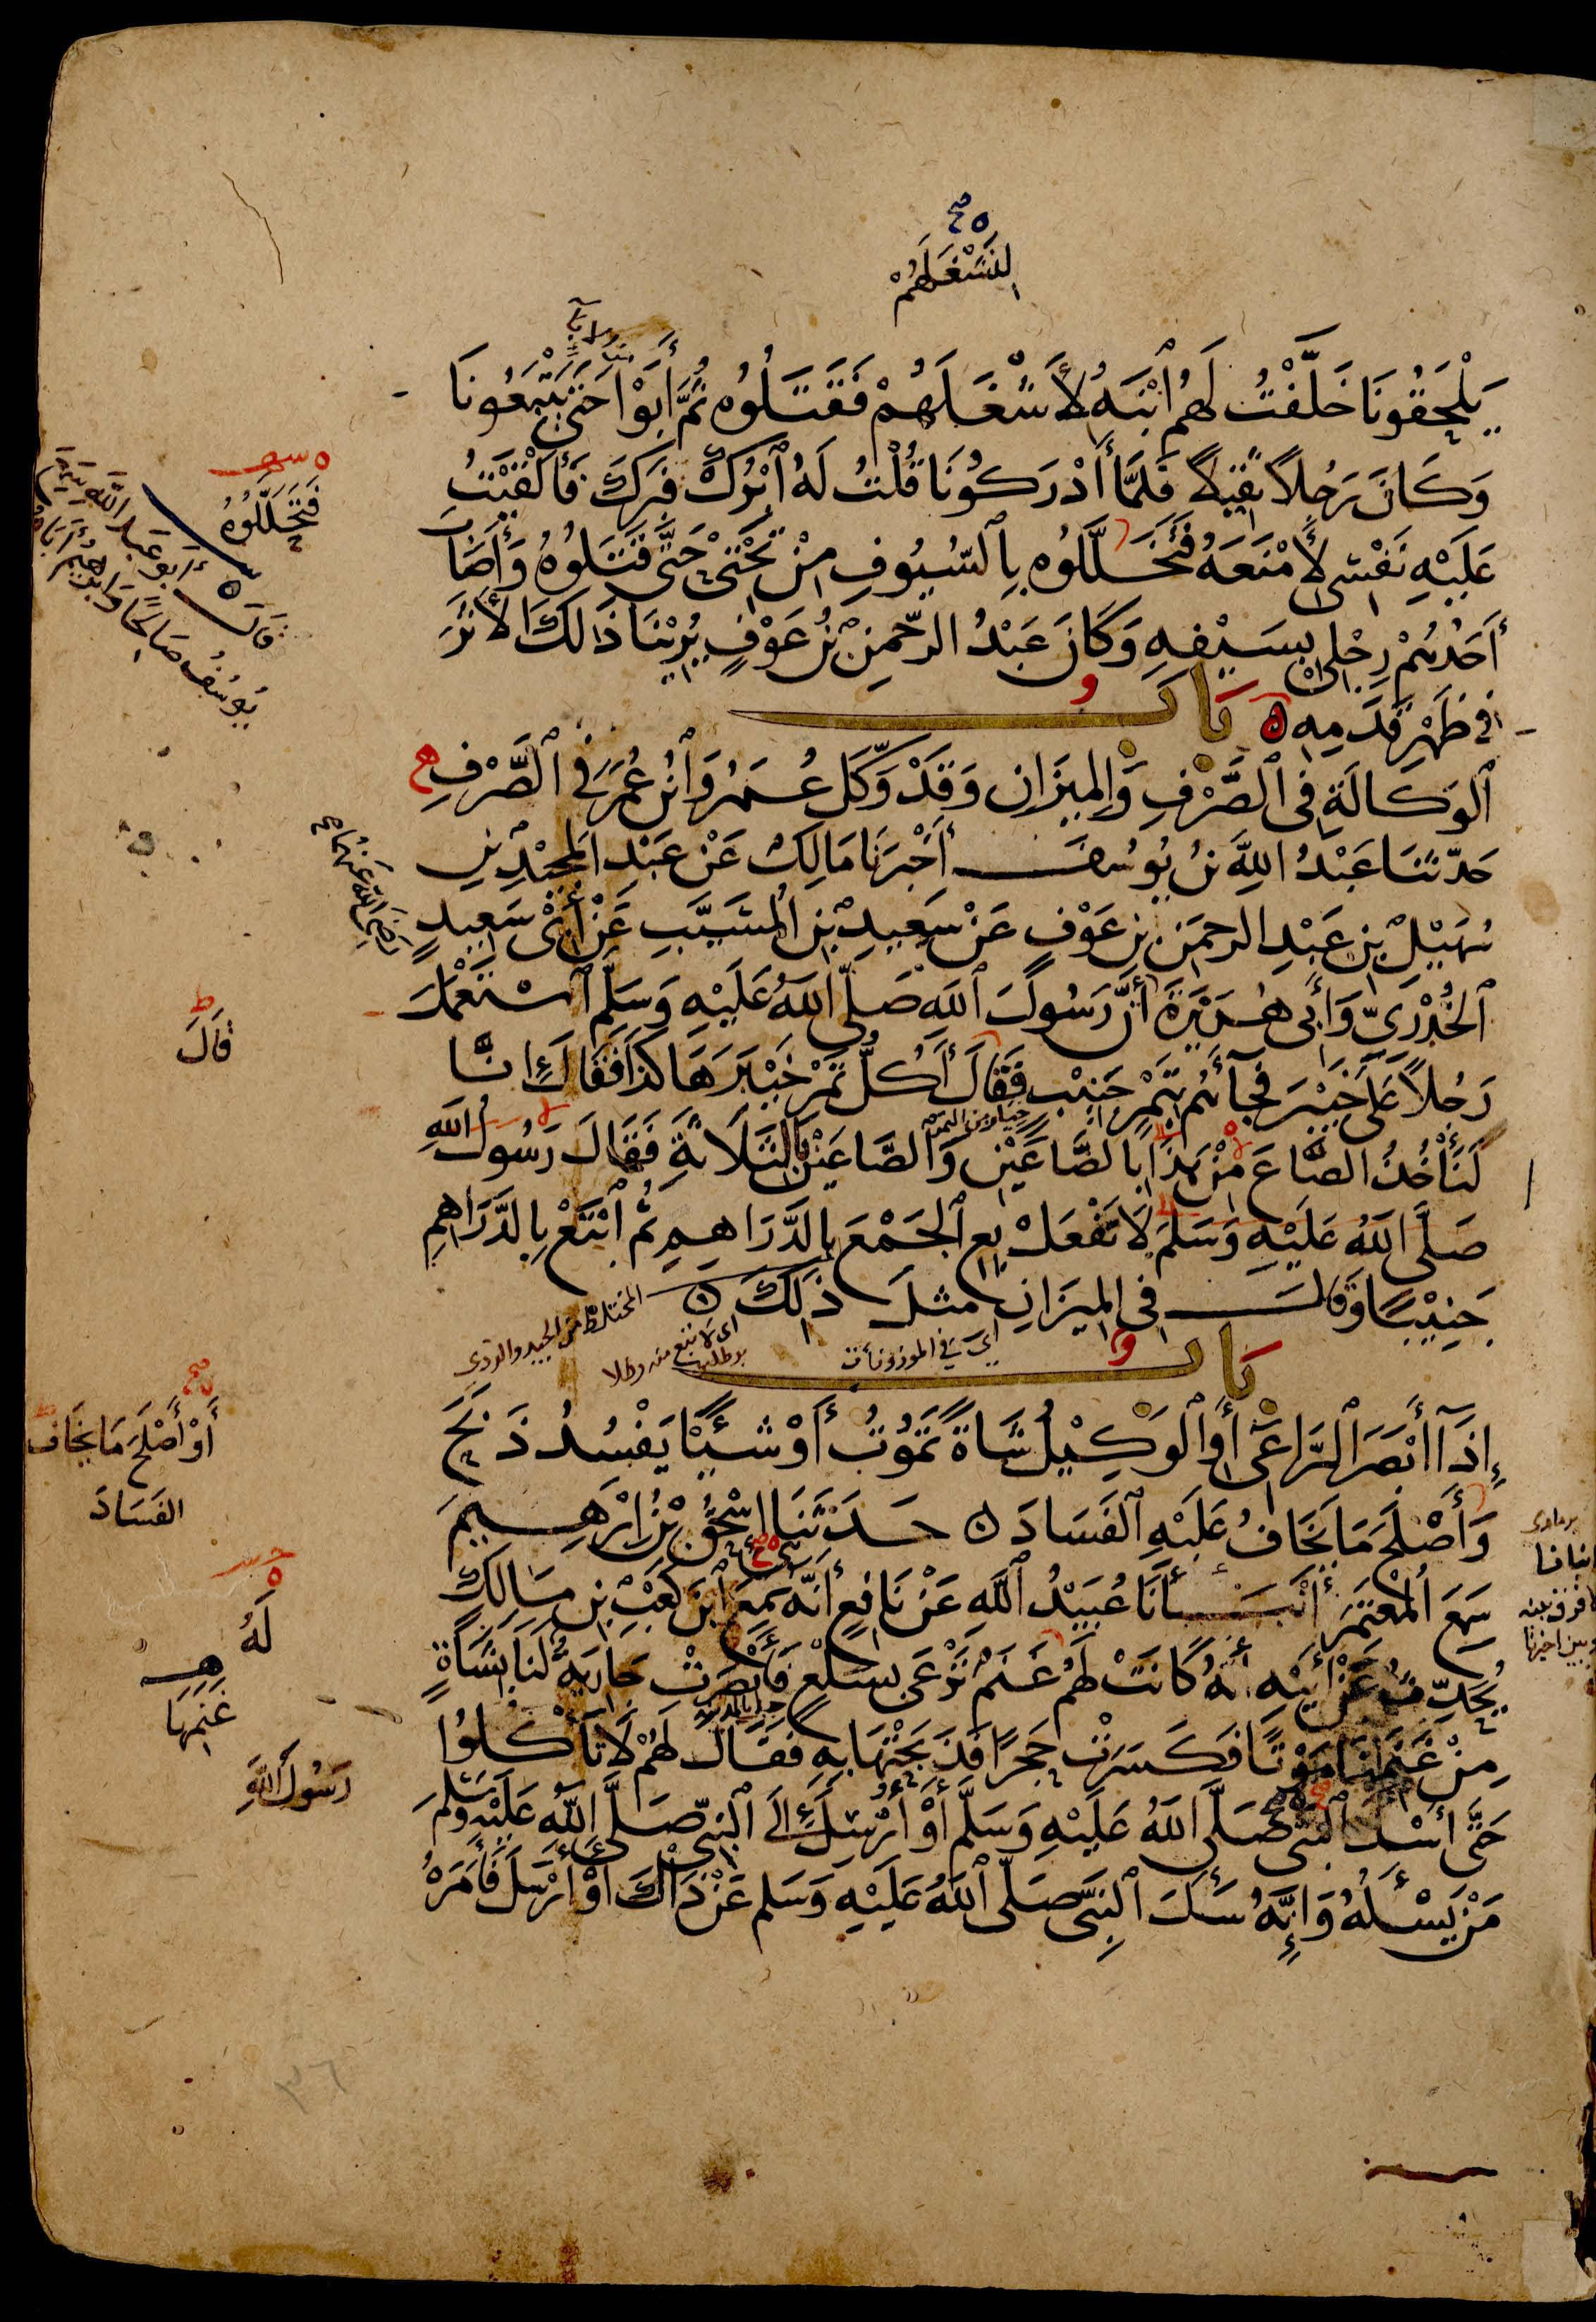 لِنَشْغَلَهُمْ
يَلْحَقُونَا خَلَّفْتُ لَهُم ٱبْنَهُ لأَشْغَلَهُمْ فَقَتَلُوهُ ثُمَّ أَبَوْا حَتَّى يَتْبَعُونَا
وَكَانَ رَجُلاً ثَقِيلاً فَلَمَّا أَدْرَكُونَا قُلْتُ لَهُ ٱبْرُكْ فَبَرَكَ فَأَلْقَيْتُ
عَلَيْهِ نَفْسِى لأَمْنَعَهُ فَتَخَلَّلُوه بِٱلسُّيُوفِ مِنْ تَحْتِى حَتَّى قَتَلُوهُ وَأَصَابَ
أَحَدُهُمْ رِجْلِى بِسَيْفِهِ وَكَانَ عَبْدُ الرحْمنِ بْنُ عَوْفٍ يُرِيْنَا ذَلِكَ الأَثَرَ
فى ظَهْرِ قَدَمِهِ ه بَاب
ٱلوَكَالَةِ فِى ٱلصَّرْفِ وَالمِيزَانِ وَقَدْ وَكَّلَ عُمَرُ وَٱبْنُ عُمَرَ فِى ٱلصَّرْفِ
حَدّثَنَا عَبْدُ اللهِ بْنُ يُوسُفَ أَخْبَرَنَا مَالِكٌ عَنْ عَبْدِ المَجِيْدِ بْنِ
سُهَيْلِ بْنِ عَبْدِ الرحمَنِ بْنِ عَوْفٍ عَنْ سَعِيدِ بْنِ المُسَيَّبِ عَنْ أَبِى سَعِيدٍ
ٱلخُدْرِىِّ وَأَبِى هُرَيْرَةَ أَنَّ رَسُولَ ٱللهِ صَلَّى ٱللهُ عَلَيْهِ وَسَلَّم ٱسْتَعْمَلَ
رَجُلاً عَلَى خَيْبَرَ فَجَآءَهُم بِتَمْرٍ جَنِيْبٍ فَقَالَ أَكُلُّ تَمْرِ خَيْبَرَ هَاكَذَا فَقَالَ إِنَّا
لَنَأْخُذُ الصَّاعَ مِنْ هَذَا بِالصَّاعَيْنِ وَالصَّاعَيْنِ بِالثَّلاَثَةِ فَقَالَ رَسُولُ اللهِ
صَلَّى اللهُ عَلَيْهِ وَسَلمَ لَا تَفْعَلْ بِعِ ٱلجَمْعَ بِالدَّرَاهِمِ ثُمَّ ٱبْتَعْ بِالدَّرَاهِمِ
جَنِيْبًا وَقَالَ فِى المِيزَانِ مثلَ ذَلِكَ ه
بَاب
إِذَآ أَبْصَرَ ٱلرَّاعِى أَوِ ٱلوَكِيْلُ شَاةً تَمُوْتُ أَوْ شَيْئًا يَفْسُدُ ذَبَحَ
وَأَصْلَحَ مَا يَخَافُ عَلَيْهِ ٱلفَسَادَ ه حَدَّثَنَا إِسْحَقُ بْنُ إبْرَهِيمَ
سَمِعَ ٱلمُعْتَمِرَ أَنْبَأَنَا عُبَيْدُ ٱللهِ عَنْ نَافِعٍ أَنَّه سَمِعَ ٱبْنَ كَعْبِ بْنِ مَالِكٍ
يُحَدِّثُ عَنْ أَبِيْهِ أَنَّهُ كَانَتْ لَهُمْ غَنَمٌ تَرْعَى بِسَلْعٍ فَأَبْصَرَتْ جَارِيَةٌ لَنَا بِشَاةٍ
مِنْ غَنَمِنَا مَوْتًا فَكَسَرَتْ حَجَرًا فَذَبَحَتْهَا بِهِ فَقَالَ لَهُمْ لَا تَأْكُلُوا
حَتَّى أَسْأَلَ ٱلنبىَّ صَلَّى اللهُ عَلَيْهِ وَسَلَّم أَوْ أُرْسِلَ إِلَى ٱلنبِىِّ صَلَّى اللهُ عَلَيْهِ وَسَلَّمَ
مَنْ يَسْأَلُهُ وَإِنَّهُ سَأَلَ ٱلنبِىَّ صَلَّى ٱللهُ عَلَيْهِ وَسَلم عَنْ ذَاكَ أَوْ أَرْسَلَ فَأَمَرَهُ
فَتَجَلَّلُوهُ
قَالَ أَبُو عَبْدِ اللهِ سَمِعَ
يُوسُفُ صَالِحًا وَإِبْرَاهِيمُ أَبَاهُ
رَضِىَ اللهُ عَنْهُمَا
قَالَ
أى فى الموزونات
المختلط من الجيد والردى
أَوْ أَصْلَحَ مَا يَخَافُ
الفَسَادَ
لَهُ
غَنَمِهَا
رَسُولَ اللهِ
وبين اخبرنا
٣٦